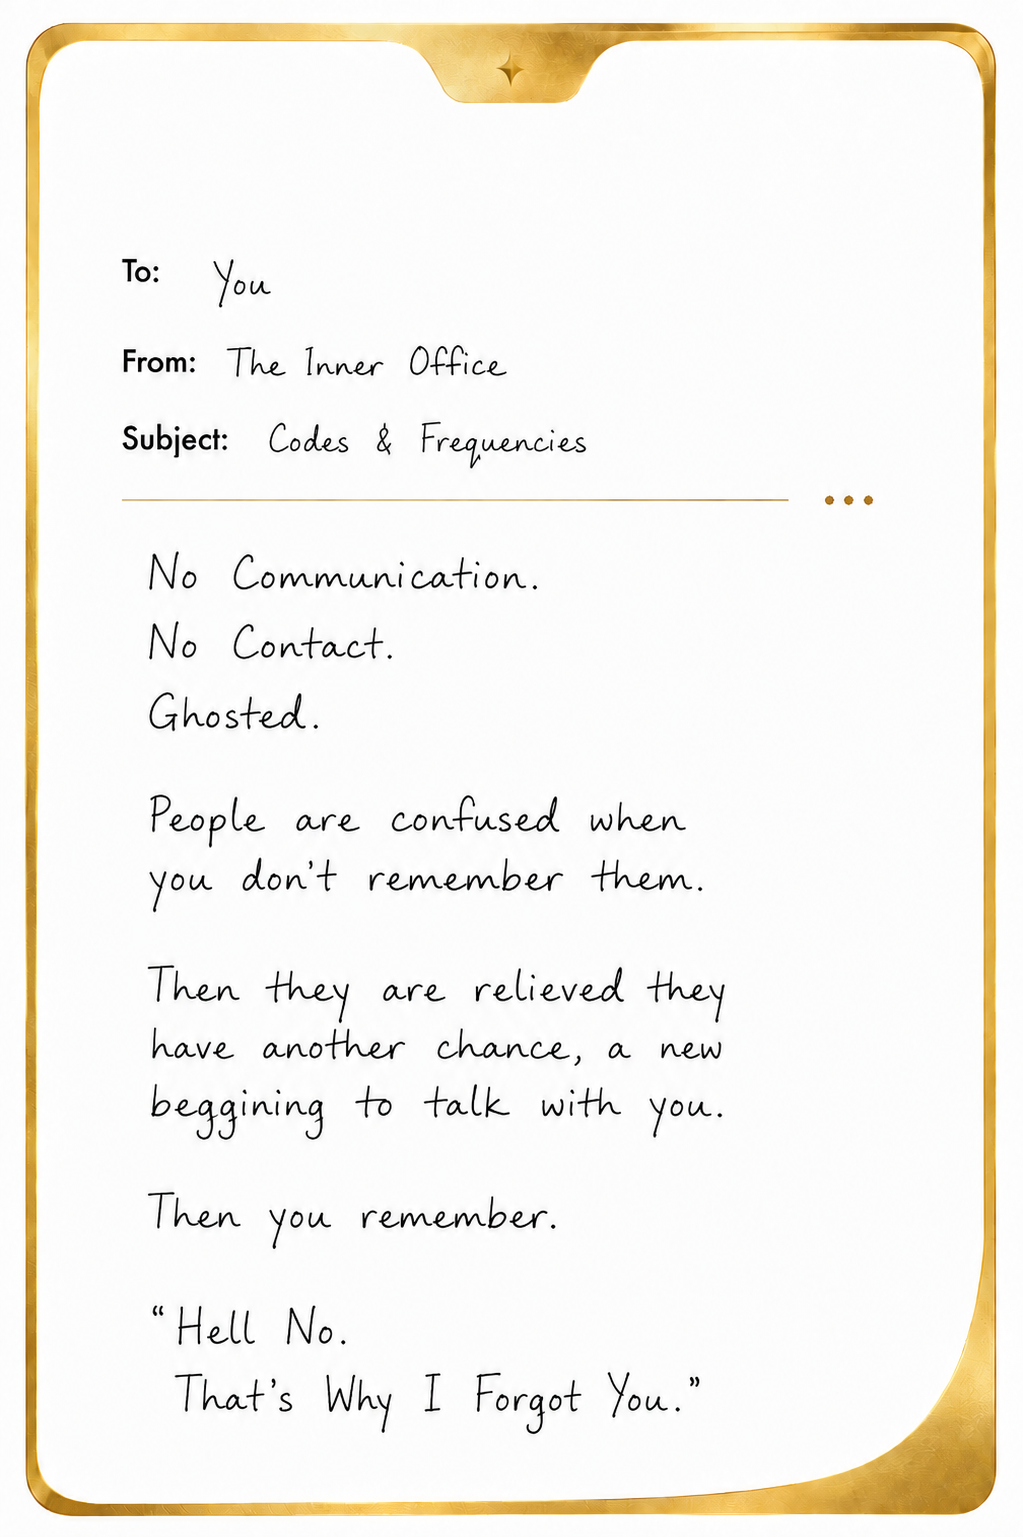 To: You
From: The Inner Office
Subject: Codes & Frequencies
No Communication.
No Contact.
Ghosted.
People are confused when
you don't remember them.
Then they are relieved they
have another chance, a new
beggining to talk with you.
Then you remember.
“Hell No.
That's Why I Forgot You.”